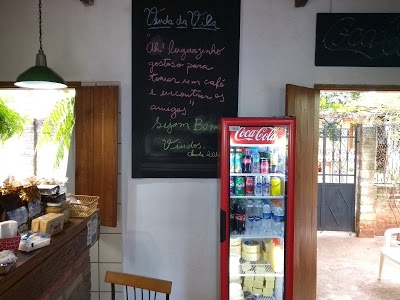 Venda da Vila
"Ah! Lugarzinho
gostoso para
tomar um café
e encontrar os
amigos"
Sejam Bem
Vindos.
desde
Coca-Cola
Coca-Cola